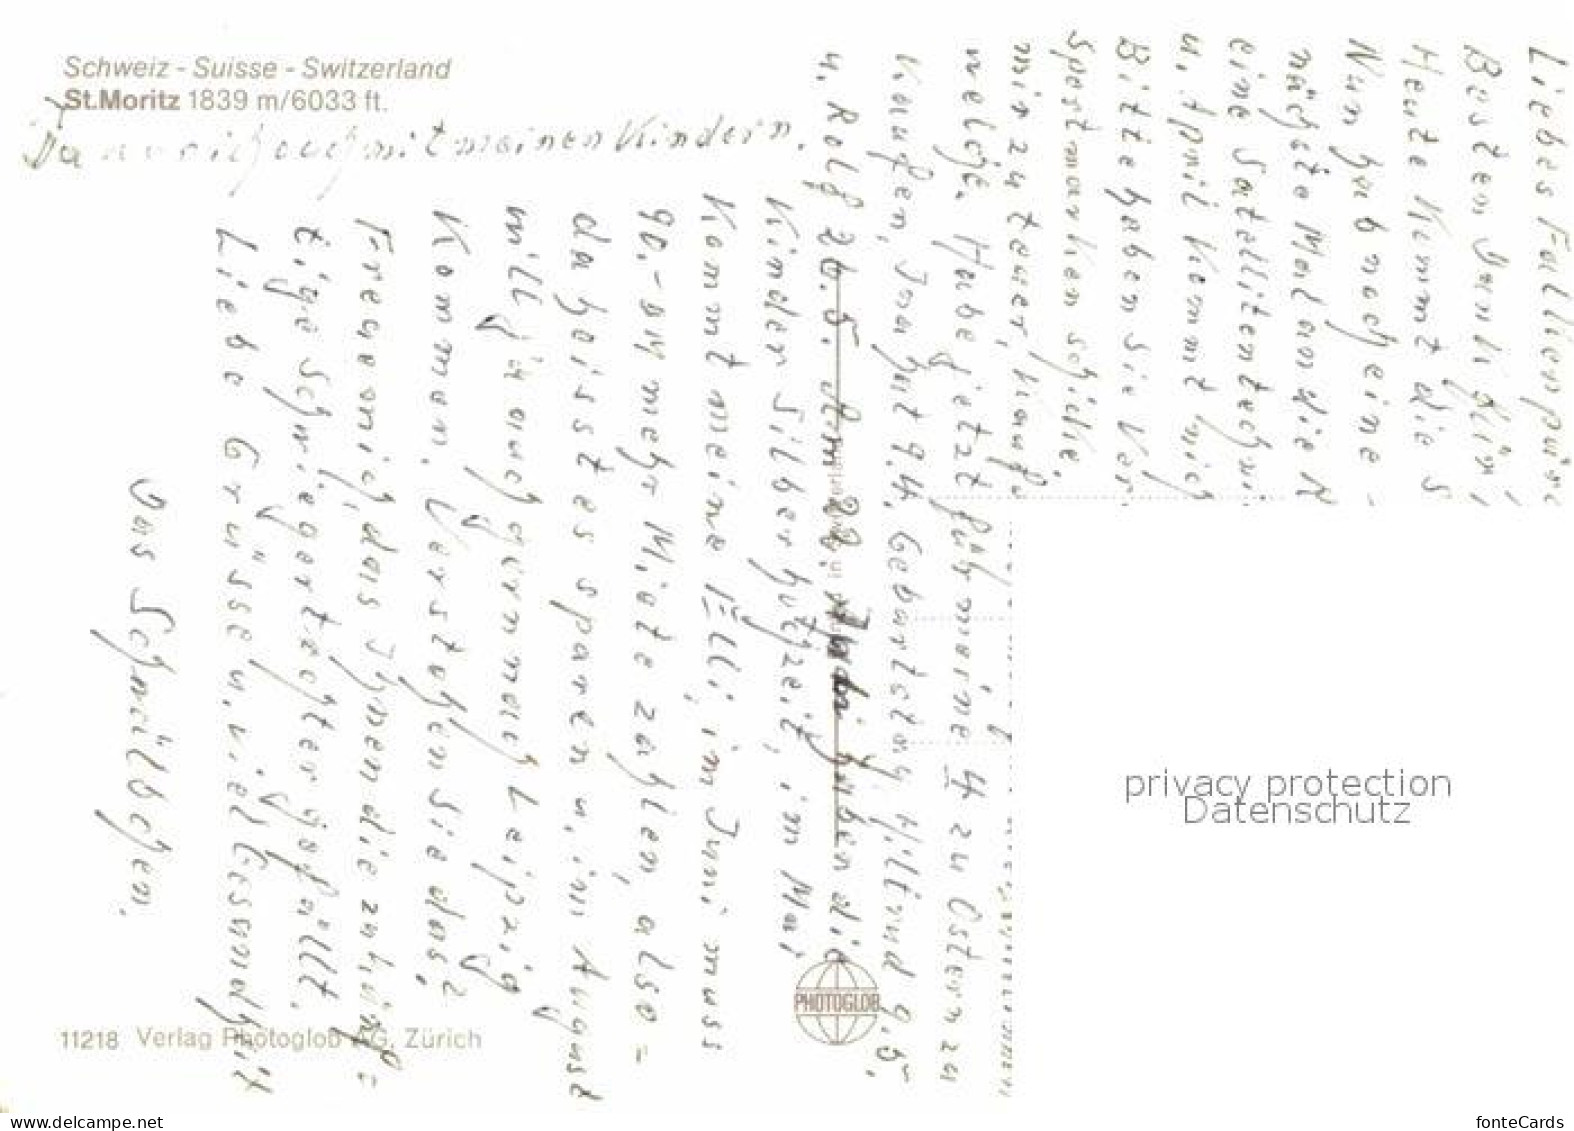 Schweiz - Suisse - Switzerland
St.Moritz 1839 m/6033 ft.
Da war ich auch mit meinen Kindern.
Liebes
Besten Dank
Heute kommt die
Nun hab noch eine
nächste Mal an die
eine Satellitentechni
u. April kommt
Bitte geben Sie
Spestmarken schicke.
mir zu teuer,
welche. Habe jetzt für meine 4 zu Ostern zu
kaufen, Ina hat 9.4. Geburtstag Hiltrud 9.5.
u. Rolf 26.5. Am 22. haben die
Kinder Silberhotzeit, im Mai
kommt meine Elli, im Juni muss
90.- DM mehr Miete zahlen, also =
da heisst es sparen u. im August
will ja auch gern nach Leipzig
kommen. Verstehen Sie das?
Freue mich, das Ihnen die zukünf=
tige Schwiegertochter gefällt.
Liebe Grüsse u. viel Gesundheit
Das Schwälbchen.
11218 Verlag Photoglob AG, Zürich
PHOTOGLOB
privacy protection
Datenschutz
www.delcampe.net
fonteCards